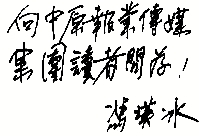 向中原報業傳媒
集團讀者問好！
馮英冰